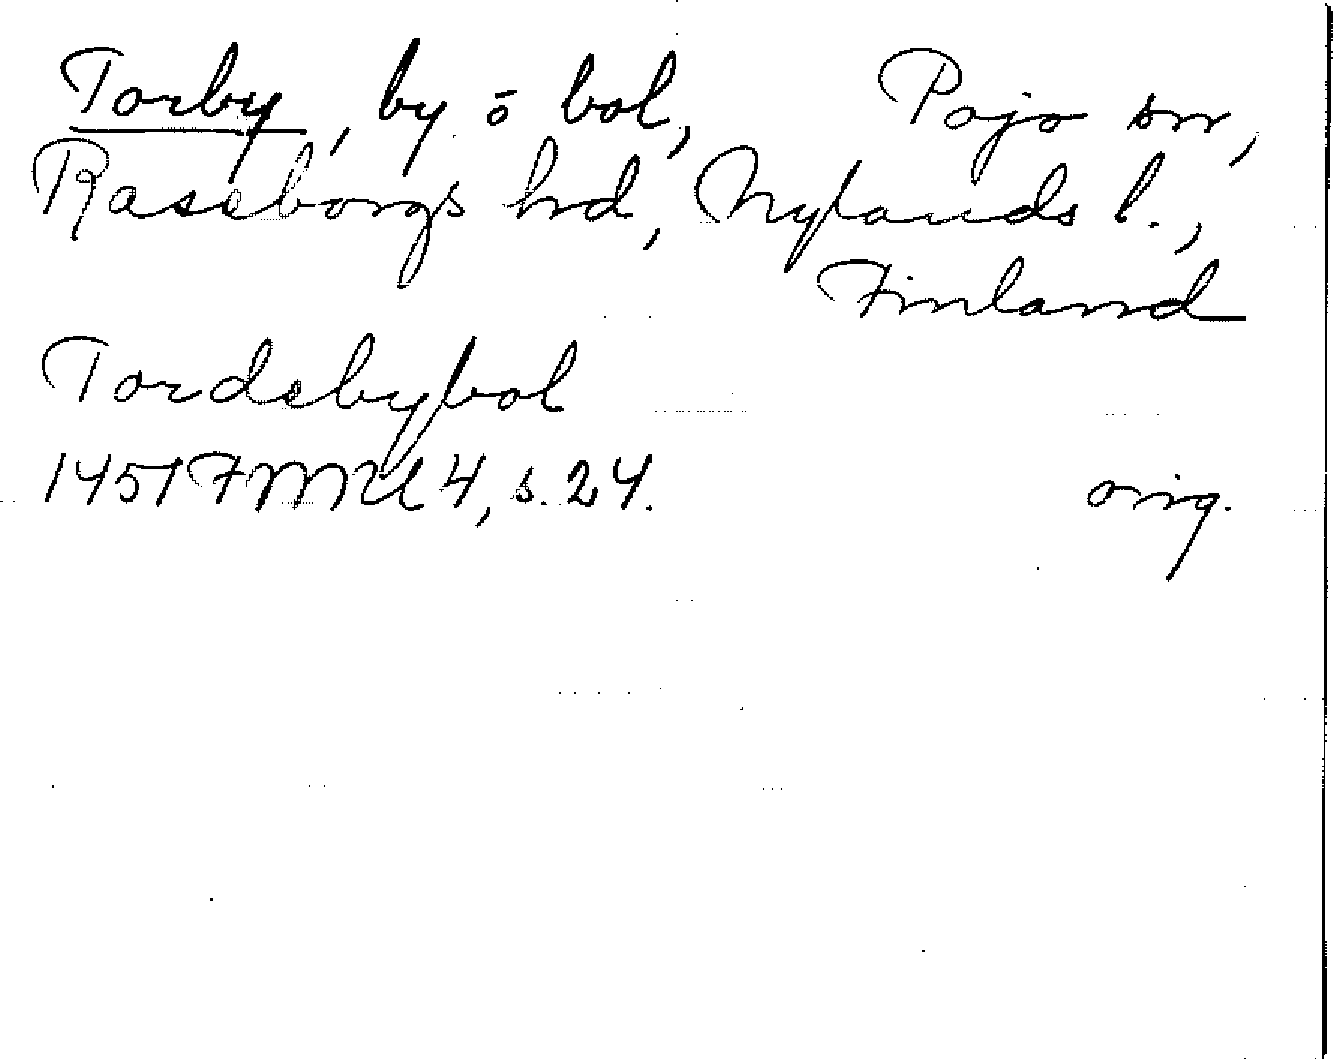 Torby, by o bol, Pojo sn,
Raseborgs hd, Nylands l.,
Finland
Tordebybol
1451 FMU 4, s. 24. orig.